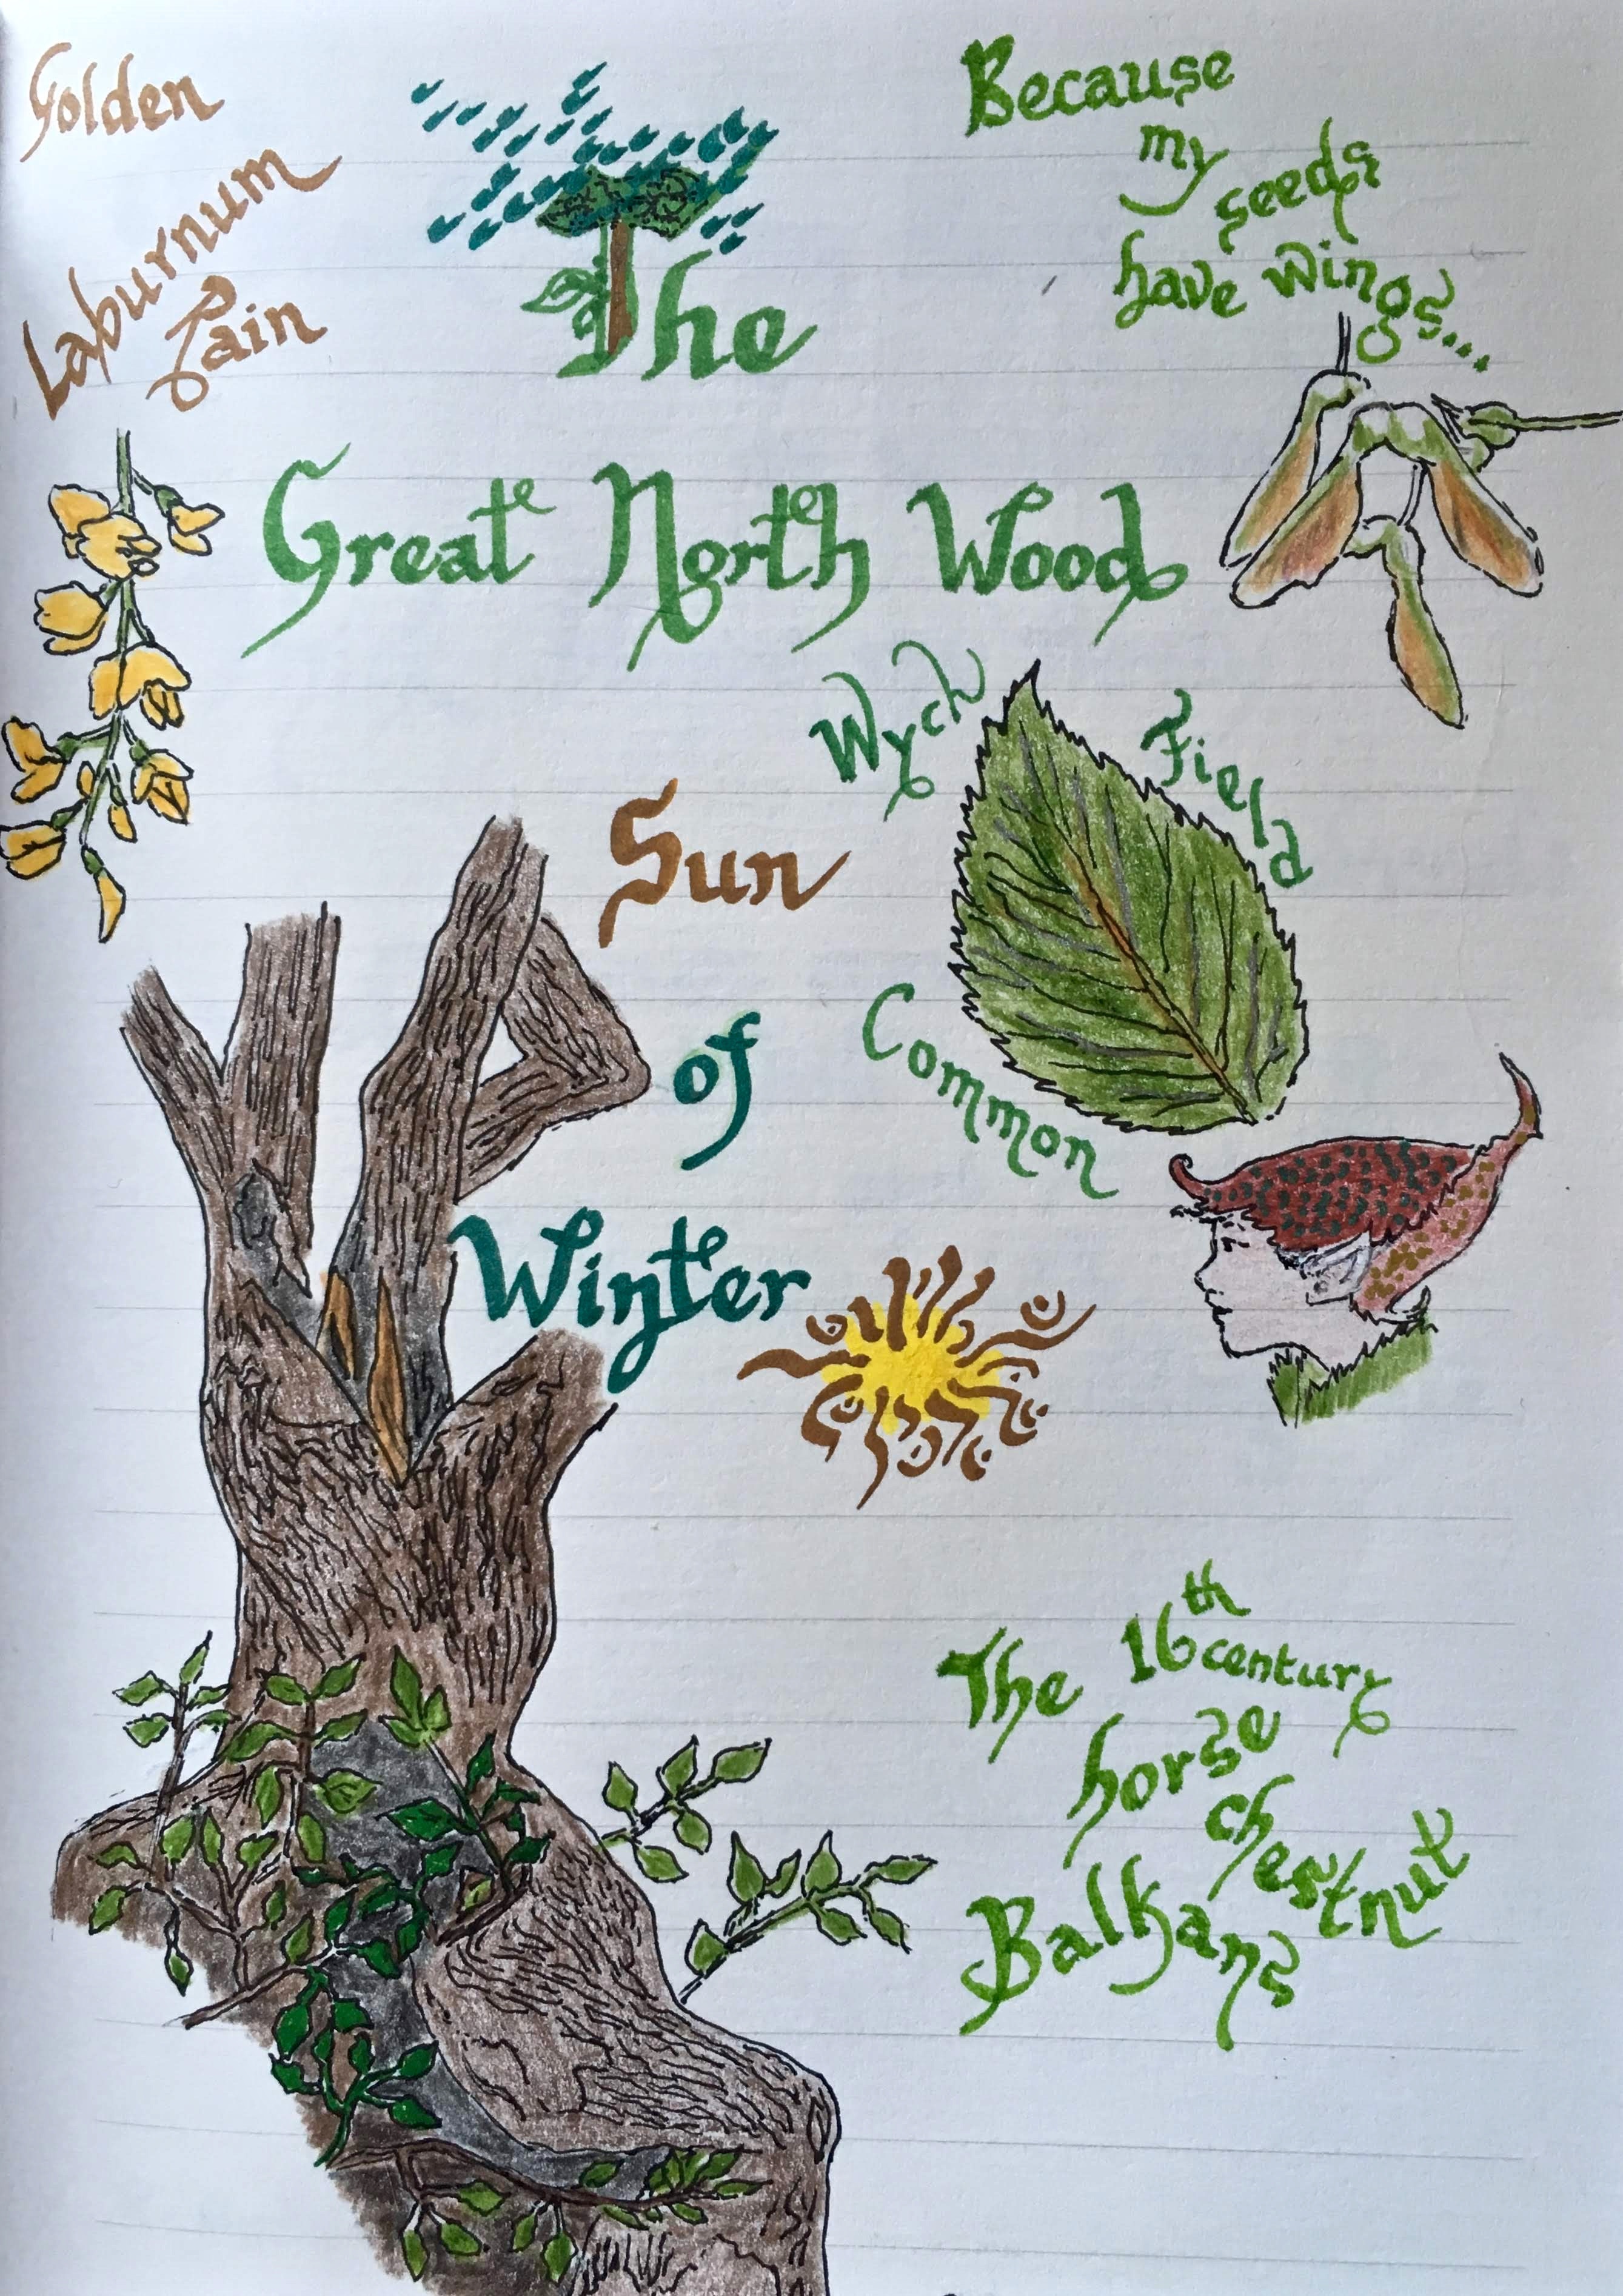 Golden
Laburnum
Rain
Because
my
seeds
have wings...
The
Great North Wood
Wych
Field
Common
Sun
of
Winter
The 16th century
horse
chestnut
Balkans